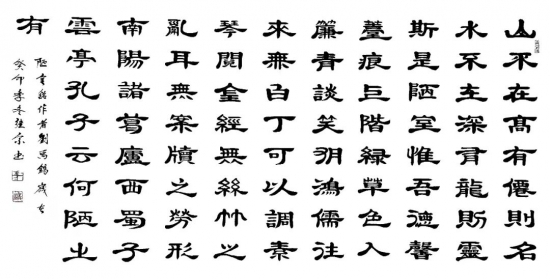 山不在高有僊則名
水不在深有龍則靈
斯是陋室惟吾德馨
苔痕上階緑草色入
簾青談笑有鴻儒往
來無白丁可以調素
琴閱金經無絲竹之
亂耳無案牘之勞形
南陽諸葛廬西蜀子
雲亭孔子云何陋之
有
陋室銘作者劉禹錫歲在
癸卯季冬